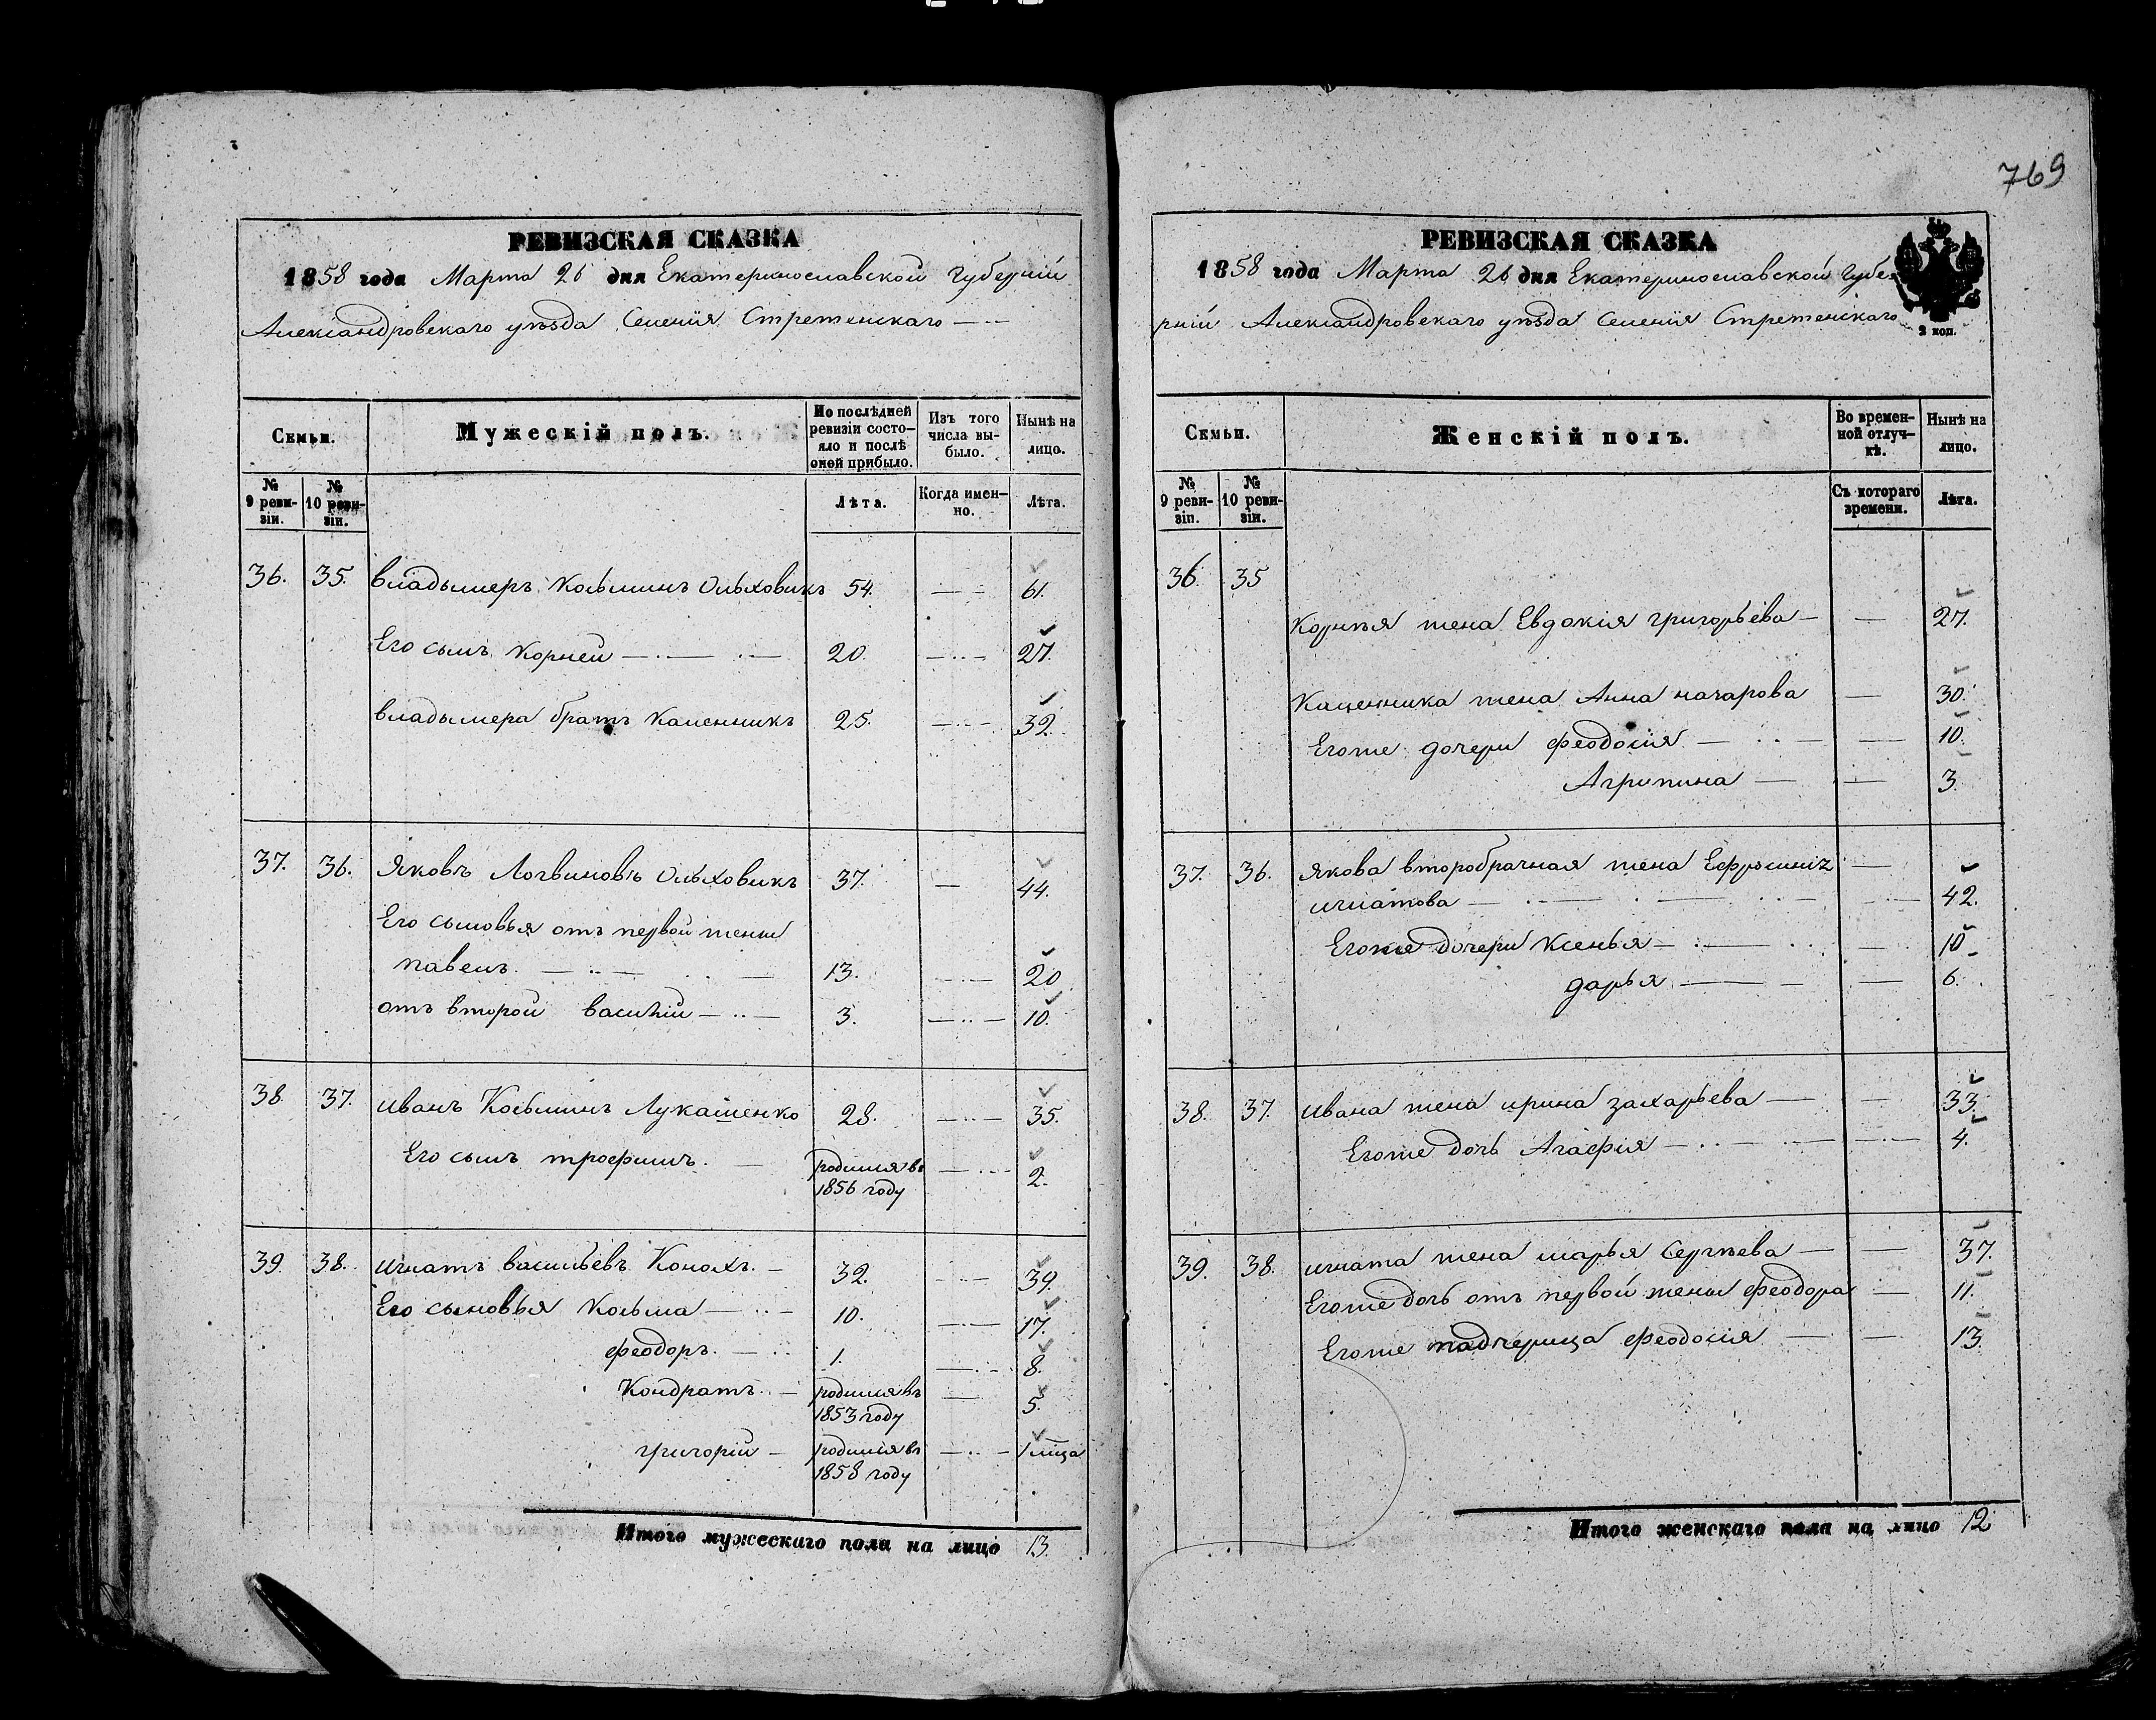 769
РЕВИЗСКАЯ СКАЗКА
1858 года Марта 26 дня Екатеринославской Губерніи
Александровскаго уѣзда Селенія Стретенскаго
Семьи.
Мужескій полъ.
По послѣдней ревизіи состояло и послѣ оной прибыло.
Изъ того числа выбыло.
Нынѣ на лицо.
№ 9 ревизіи.
№ 10 ревизіи.
Лѣта.
Когда именно.
Лѣта.
36. 35. Владымеръ Косьминъ Ольховикъ 54. 61.
Его сынъ Корней 20. 27.
Владымера братъ Каленникъ 25. 32.
37. 36. Яковъ Логвиновъ Ольховикъ 37. 44.
Его сыновья отъ первой жены
павелъ. 13. 20
отъ второй василій 3. 10.
38. 37. иванъ Косьминъ Лукашенко 28. 35.
Его сынъ трофимъ. родился въ 2.
1856 году
39. 38. игнатъ васильевъ Конохъ. 32. 39.
Его сыновья Косьма 10. 17.
феодоръ. 1. 8.
Кондратъ. родился въ 5.
1853 году
григорій родился въ 1 мѣца
1858 году
Итого мужескаго пола на лицо 13.
РЕВИЗСКАЯ СКАЗКА
1858 года Марта 26 дня Екатеринославской Губе
рніи Александровскаго уѣзда Селенія Стретенскаго
2 коп.
Семьи.
Женскій полъ.
Во временной отлучкѣ.
Нынѣ на лицо.
№ 9 ревизіи.
№ 10 ревизіи.
Съ котораго времени.
Лѣта.
36. 35
Корнѣя жена Евдокія григорьева 27.
Каленника жена Анна 30.
Егоже дочери феодосія 10.
Агрипина 3.
37. 36. Якова второбрачная жена
игнатова 42.
Егоже дочери Ксенья 10
дарья 6.
38. 37. ивана жена ирина захарьева 33.
Егоже дочь Агафія 4.
39. 38. игната жена марья Сергѣева 37.
Егоже дочь отъ первой жены феодора 11.
Егоже падчерица феодосія 13.
Итого женскаго пола на лицо 12